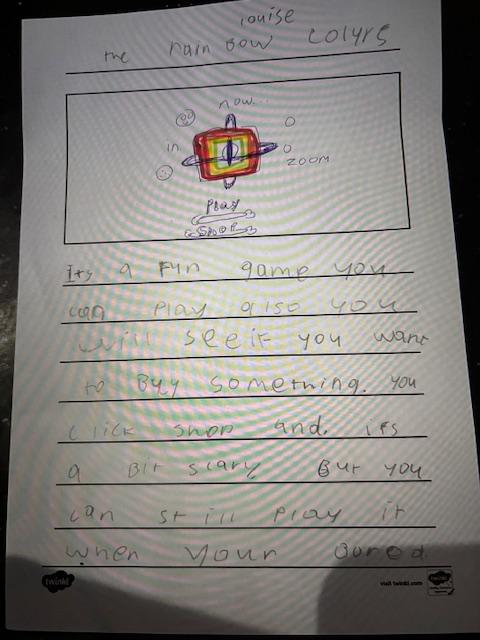 louise
the rain bow colyrs
now
in
zoom
Play
Shop
Its a fun game you
can play also you
will see if you want
to Buy something. you
click shop and. its
a Bit scary But you
can still play it
when your Bored.
twinkl
visit twinkl.com